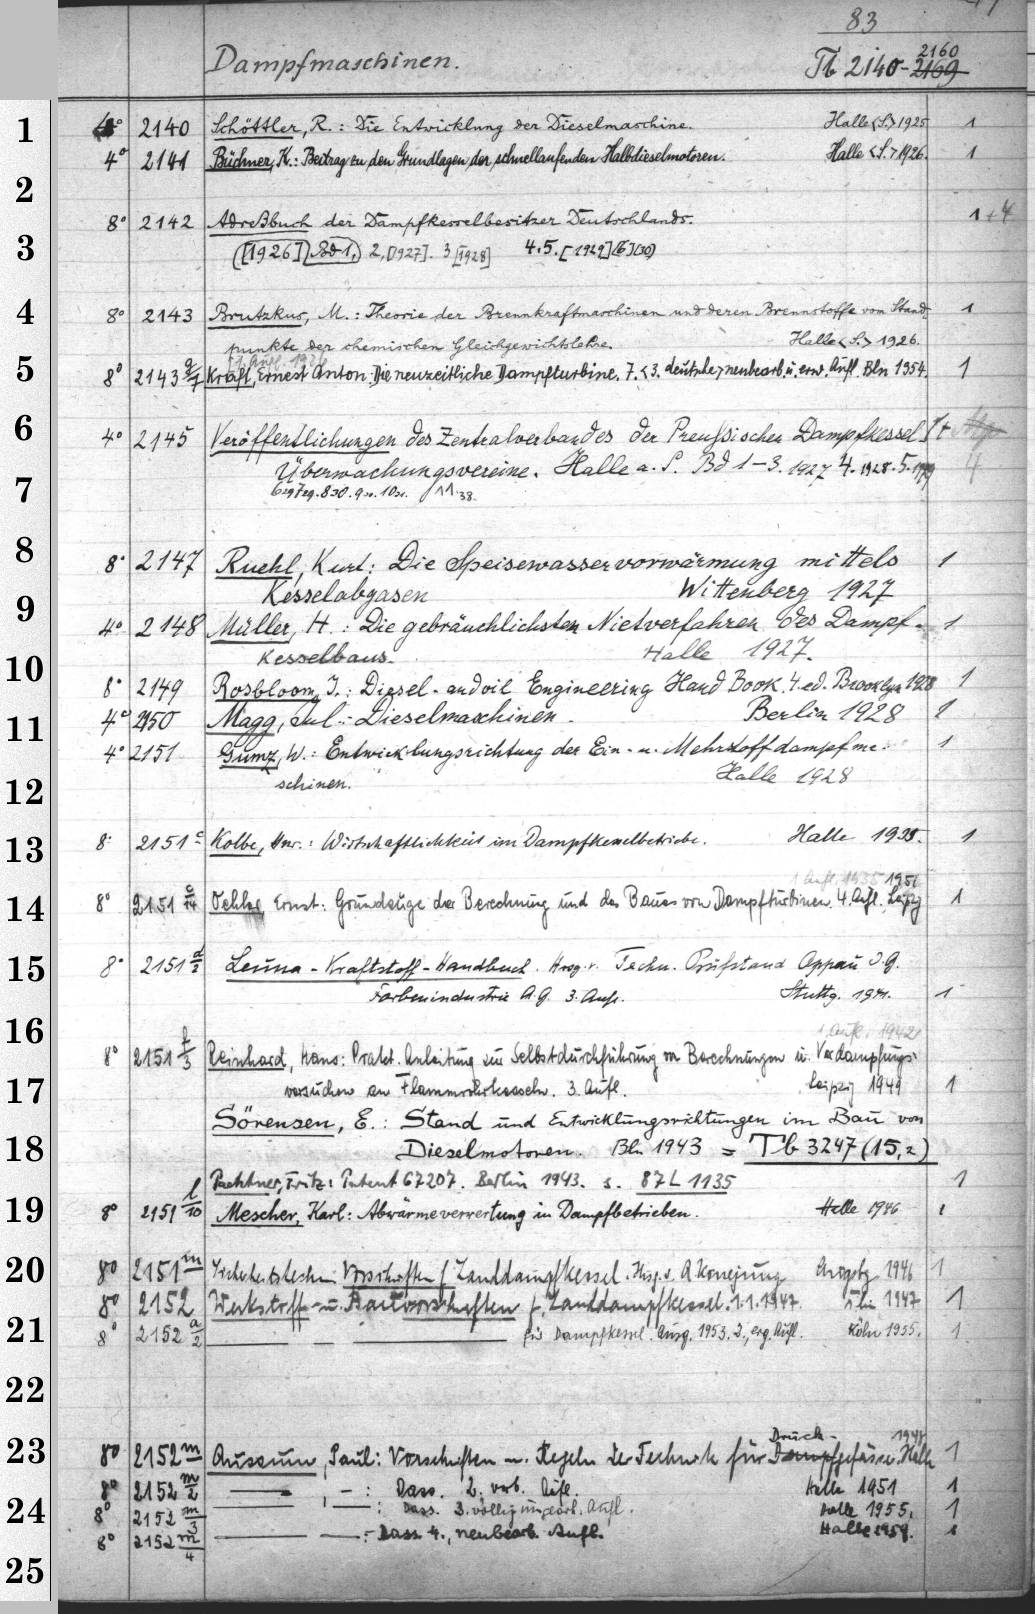 83
Dampfmaschinen. Tb 2140-2169 2160
1 4° 2140 Schöttler, R.: Die Entwicklung der Dieselmaschine. Halle <S.> 1925 1
4° 2141 Büchner, K.: Beitrag zu den Grundlagen der schnellaufenden Halbdieselmotoren. Halle <S.> 1926. 1
2
8° 2142 Adreßbuch der Dampfkesselbesitzer Deutschlands. 1 + 4
3 [1926] Bd 1, 2, [1927]. 3 [1928] 4.5. [1929] (6) (30)
4 8° 2143 Brutzkus, M.: Theorie der Brennkraftmaschinen und deren Brennstoffe vom Stand- 1
punkte der chemischen Gleichgewichtslehre. Halle <S.> 1926.
1. Aufl. 1926
5 8° 2143 a/7 Kraft, Ernest Anton: Die neuzeitliche Dampfturbine. 7. <3. deutsche> neubearb. u. erw. Aufl. Bln 1954. 1
6 4° 2145 Veröffentlichungen des Zentralverbandes der Preußischen Dampfkessel- 1+
Überwachungsvereine. Halle a. S. Bd 1-3. 1927 4. 1928. 5. 1929 4
7 11.38.
8 8° 2147 Ruehl, Kurt: Die Speisewasservorwärmung mittels 1
9 Kesselabgasen Wittenberg 1927
4° 2148 Müller, H.: Die gebräuchlichsten Nietverfahren des Dampf- 1
10 kesselbaus. Halle 1927.
8° 2149 Rosbloom, J.: Diesel- and oil Engineering Hand Book. 4. ed. Brooklyn 1928 1
11 4° 2150 Magg, Jul.: Dieselmaschinen. Berlin 1928 1
4° 2151 Gumz, W.: Entwicklungsrichtung der Ein- u. Mehrstoffdampfma- 1
12 schinen. Halle 1928
13 8° 2151 c Kolbe, Hnr.: Wirtschaftlichkeit im Dampfkesselbetriebe. Halle 1935. 1
1. Aufl. 1935 1951
14 8° 2151 c/14 Oehler, Ernst: Grundzüge der Berechnung und des Baues von Dampfturbinen. 4. Aufl. Leipzig 1
15 8° 2151 d/2 Leuna-Kraftstoff-Handbuch. Hrsg. v. Techn. Prüfstand Oppau I.G.
Farbenindustrie A.G. 3. Aufl. Stuttg. 1941. 1
16 1. Aufl. 1942
8° 2151 f/3 Reinhard, Hans: Prakt. Anleitung zur Selbstdurchführung von Berechnungen u. Verdampfungs-
17 versuchen an Flammrohrkesseln. 3. Aufl. Leipzig 1949 1
Sörensen, E.: Stand und Entwicklungsrichtungen im Bau von
18 Dieselmotoren. Bln 1943 = Tb 3247 (15,2)
Pachtner, Fritz: Patent 67207. Berlin 1943. s. 87 L 1135 1
19 8° 2151 l/10 Mescher, Karl: Abwärmeverwertung in Dampfbetrieben. Halle 1946 1
20 8° 2151 m Sicherheitstechn Vorschriften f. Landdampfkessel. Hrsg. v. 1946 1
8° 2152 Werkstoff- u. Bauvorschriften f. Landdampfkessel. 1.1.1947. Köln 1947 1
21 8° 2152 a/2 — — für Dampfkessel. Ausg. 1953. 2., erg. Aufl. Köln 1955. 1
22
Druck- 1948
23 8° 2152 m Aussum, Paul: Vorschriften u. Regeln der Technik für Dampfgefässe. Halle 1
8° 2152 m/2 —, —: Dass. 2. verb. Aufl. Halle 1951 1
24 8° 2152 m/3 —, —: Dass. 3. völlig umgearb. Aufl. Halle 1955. 1
8° 2152 m/4 — —: Dass. 4., neubearb. Aufl. Halle 1959. 1
25